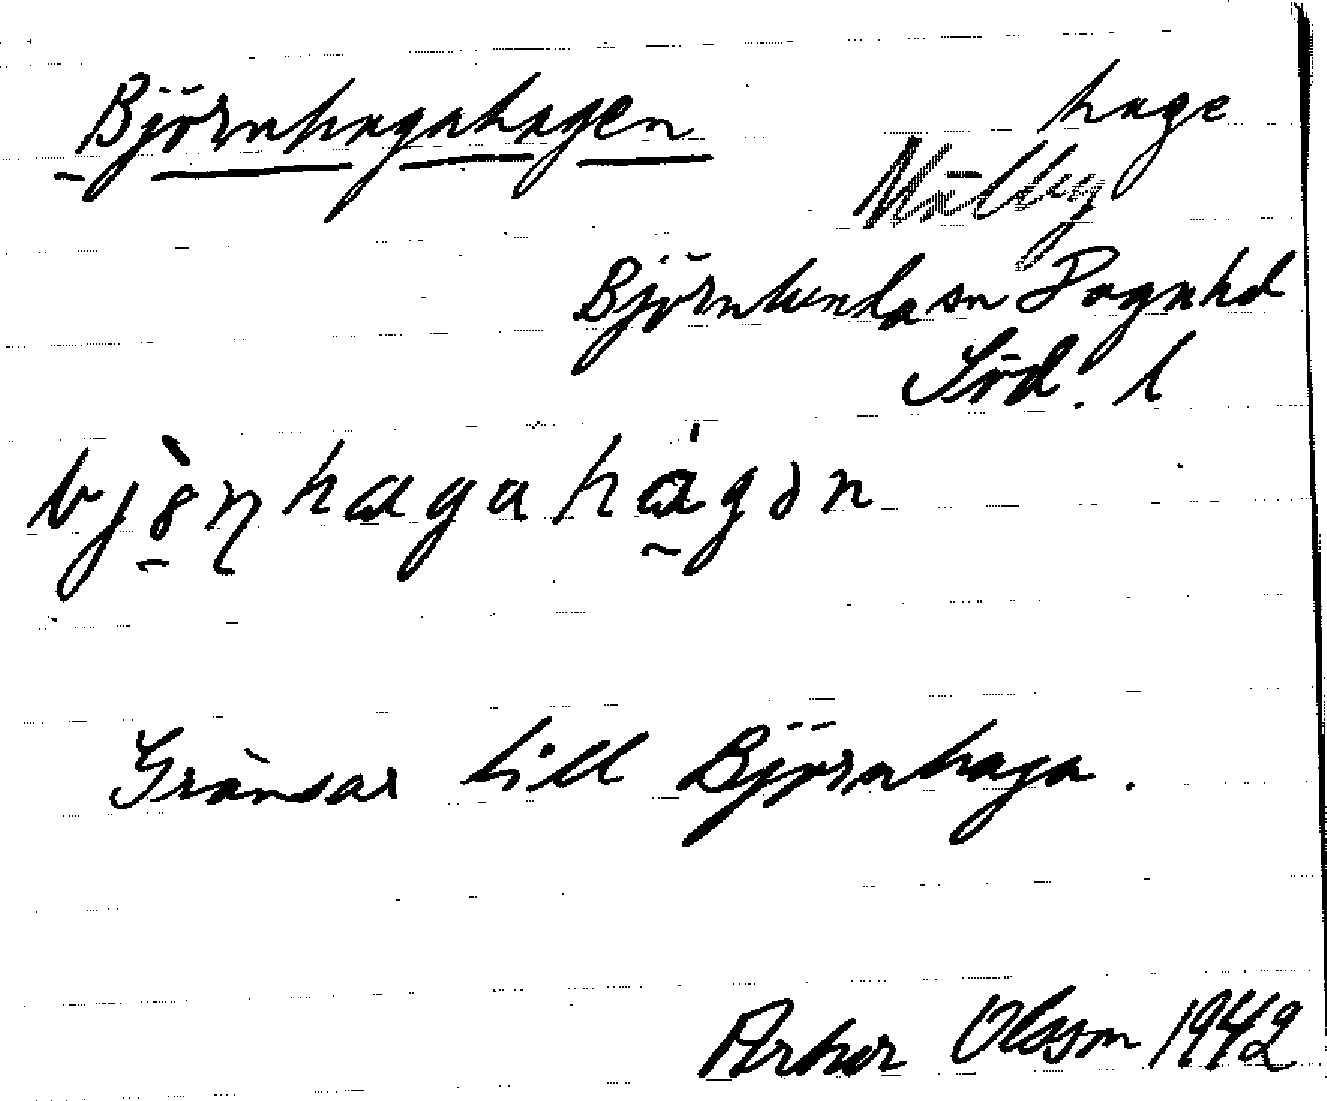 Björnhagahagen
hage
Mälby
Björnlunda sn Dagahd
Söd. l
bjònhagahágən
Gränsar till Björnhaga.
Artur Olsson 1942